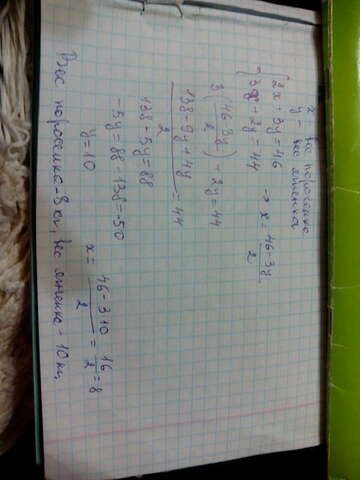 x - вес поросенка
y - вес ягненка
{2x + 3y = 46 → x = 46 - 3y / 2
3x + 2y = 44
3(46 - 3y / 2) + 2y = 44
138 - 9y + 4y / 2 = 44
138 - 5y = 88
-5y = 88 - 138 = -50
y = 10
x = 46 - 3·10 / 2 = 16 / 2 = 8
Вес поросенка - 8 кг, вес ягненка - 10 кг.